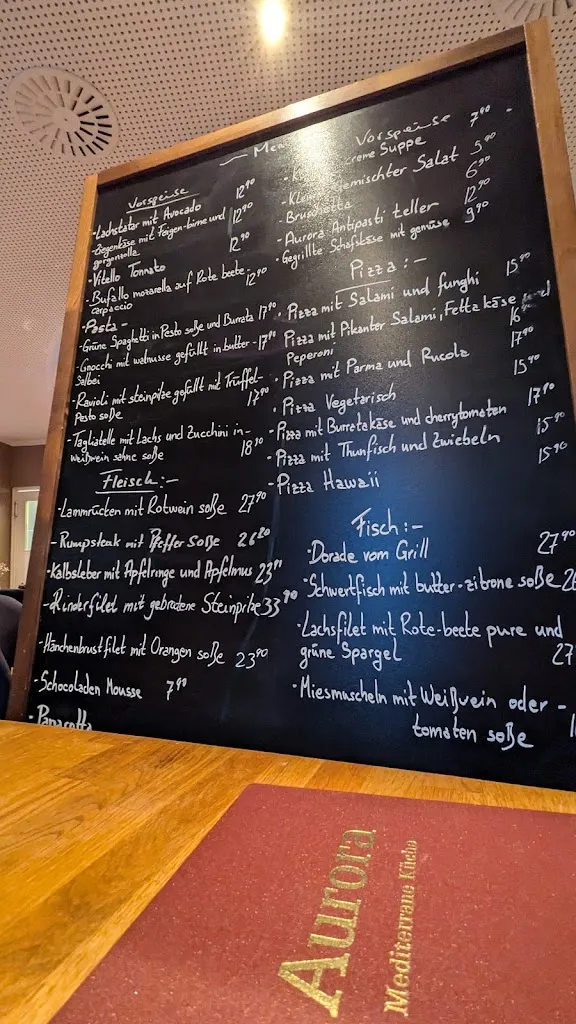 Vorspeise
-Lachstatar mit Avocado 12⁹⁰
-Ziegenkäse mit Feigen-birne und gorgonzolla 12⁹⁰
-Vitello Tonnato 12⁹⁰
-Bufallo mozarella auf Rote beete-
carpaccio 12⁹⁰
-Pasta-
-Grüne Spaghetti in Pesto soße und Burrata 17⁹⁰
-Gnocchi mit walnusse gefüllt in butter- 17⁹⁰
Salbei
-Ravioli mit steinpilze gefüllt mit Trüffel-
Pesto soße 17⁹⁰
-Tagliatelle mit Lachs und Zucchini in-
weißwein sahne soße 18⁹⁰
Fleisch:-
-Lammrücken mit Rotwein soße 27⁹⁰
-Rumpsteak mit Pfeffer soße
-Kalbsleber mit Apfelringe und Apfelmus
-Rinderfilet mit gebratene Steinpilze 33⁹⁰
-Hänchenbrustfilet mit Orangen soße 23⁹⁰
-Schocoladen Mousse 7⁹⁰
-Panacotta
Vorspeise
creme Suppe 7⁹⁰
gemischter Salat 5⁹⁰
-Bruschetta 6⁹⁰
-Aurora Antipasti teller 12⁹⁰
-Gegrillte Schafskäse mit gemüse 9⁹⁰
Pizza:-
-Pizza mit Salami und funghi 15⁹⁰
-Pizza mit Pikanter Salami, Fetta käse
Peperoni
-Pizza mit Parma und Rucola 17⁹⁰
-Pizza Vegetarisch 15⁹⁰
-Pizza mit Burrata käse und cherrytomaten 17⁹⁰
-Pizza mit Thunfisch und Zwiebeln 15⁹⁰
-Pizza Hawaii 15⁹⁰
Fisch:-
-Dorade vom Grill 27⁹⁰
-Schwertfisch mit butter-zitrone soße
-Lachsfilet mit Rote-beete pure und
grüne Spargel 27
-Miesmuscheln mit Weißwein oder-
tomaten soße
Aurora
Mediterrane Küche